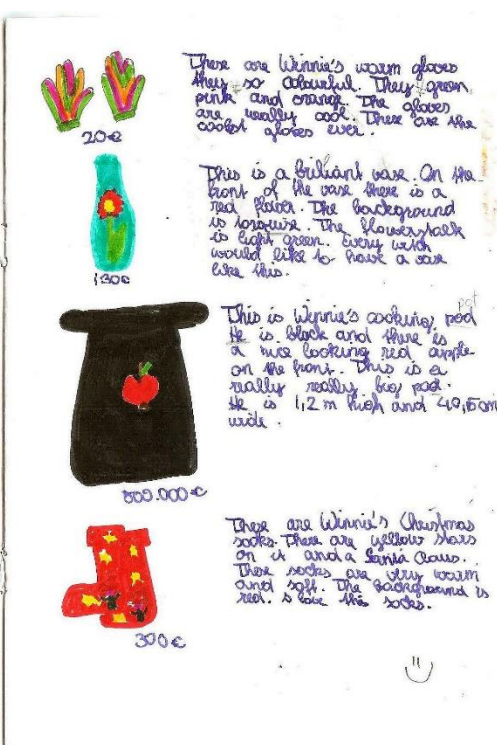 These are Winnie's warm gloves
they so colourful. They green
pink and orange. The gloves
are really cool. These are the
coolest gloves ever.
20€
This is a briliant vase. On the
front of the vase there is a
red flower. The background
is torquise. The flowerstalk
is light green. Every witch
would like to have a vase
like this.
130€
pot
This is Winnie's cooking pod
He is black and there is
a nice looking red apple
on the front. This is a
really really big pod.
He is 1,2 m high and 40,5cm
wide.
800.000€
These are Winnie's Christmas
socks. There are yellow stars
on it and a Santa Claus.
These socks are very warm
and soft. The background is
red. I love this socks.
300€